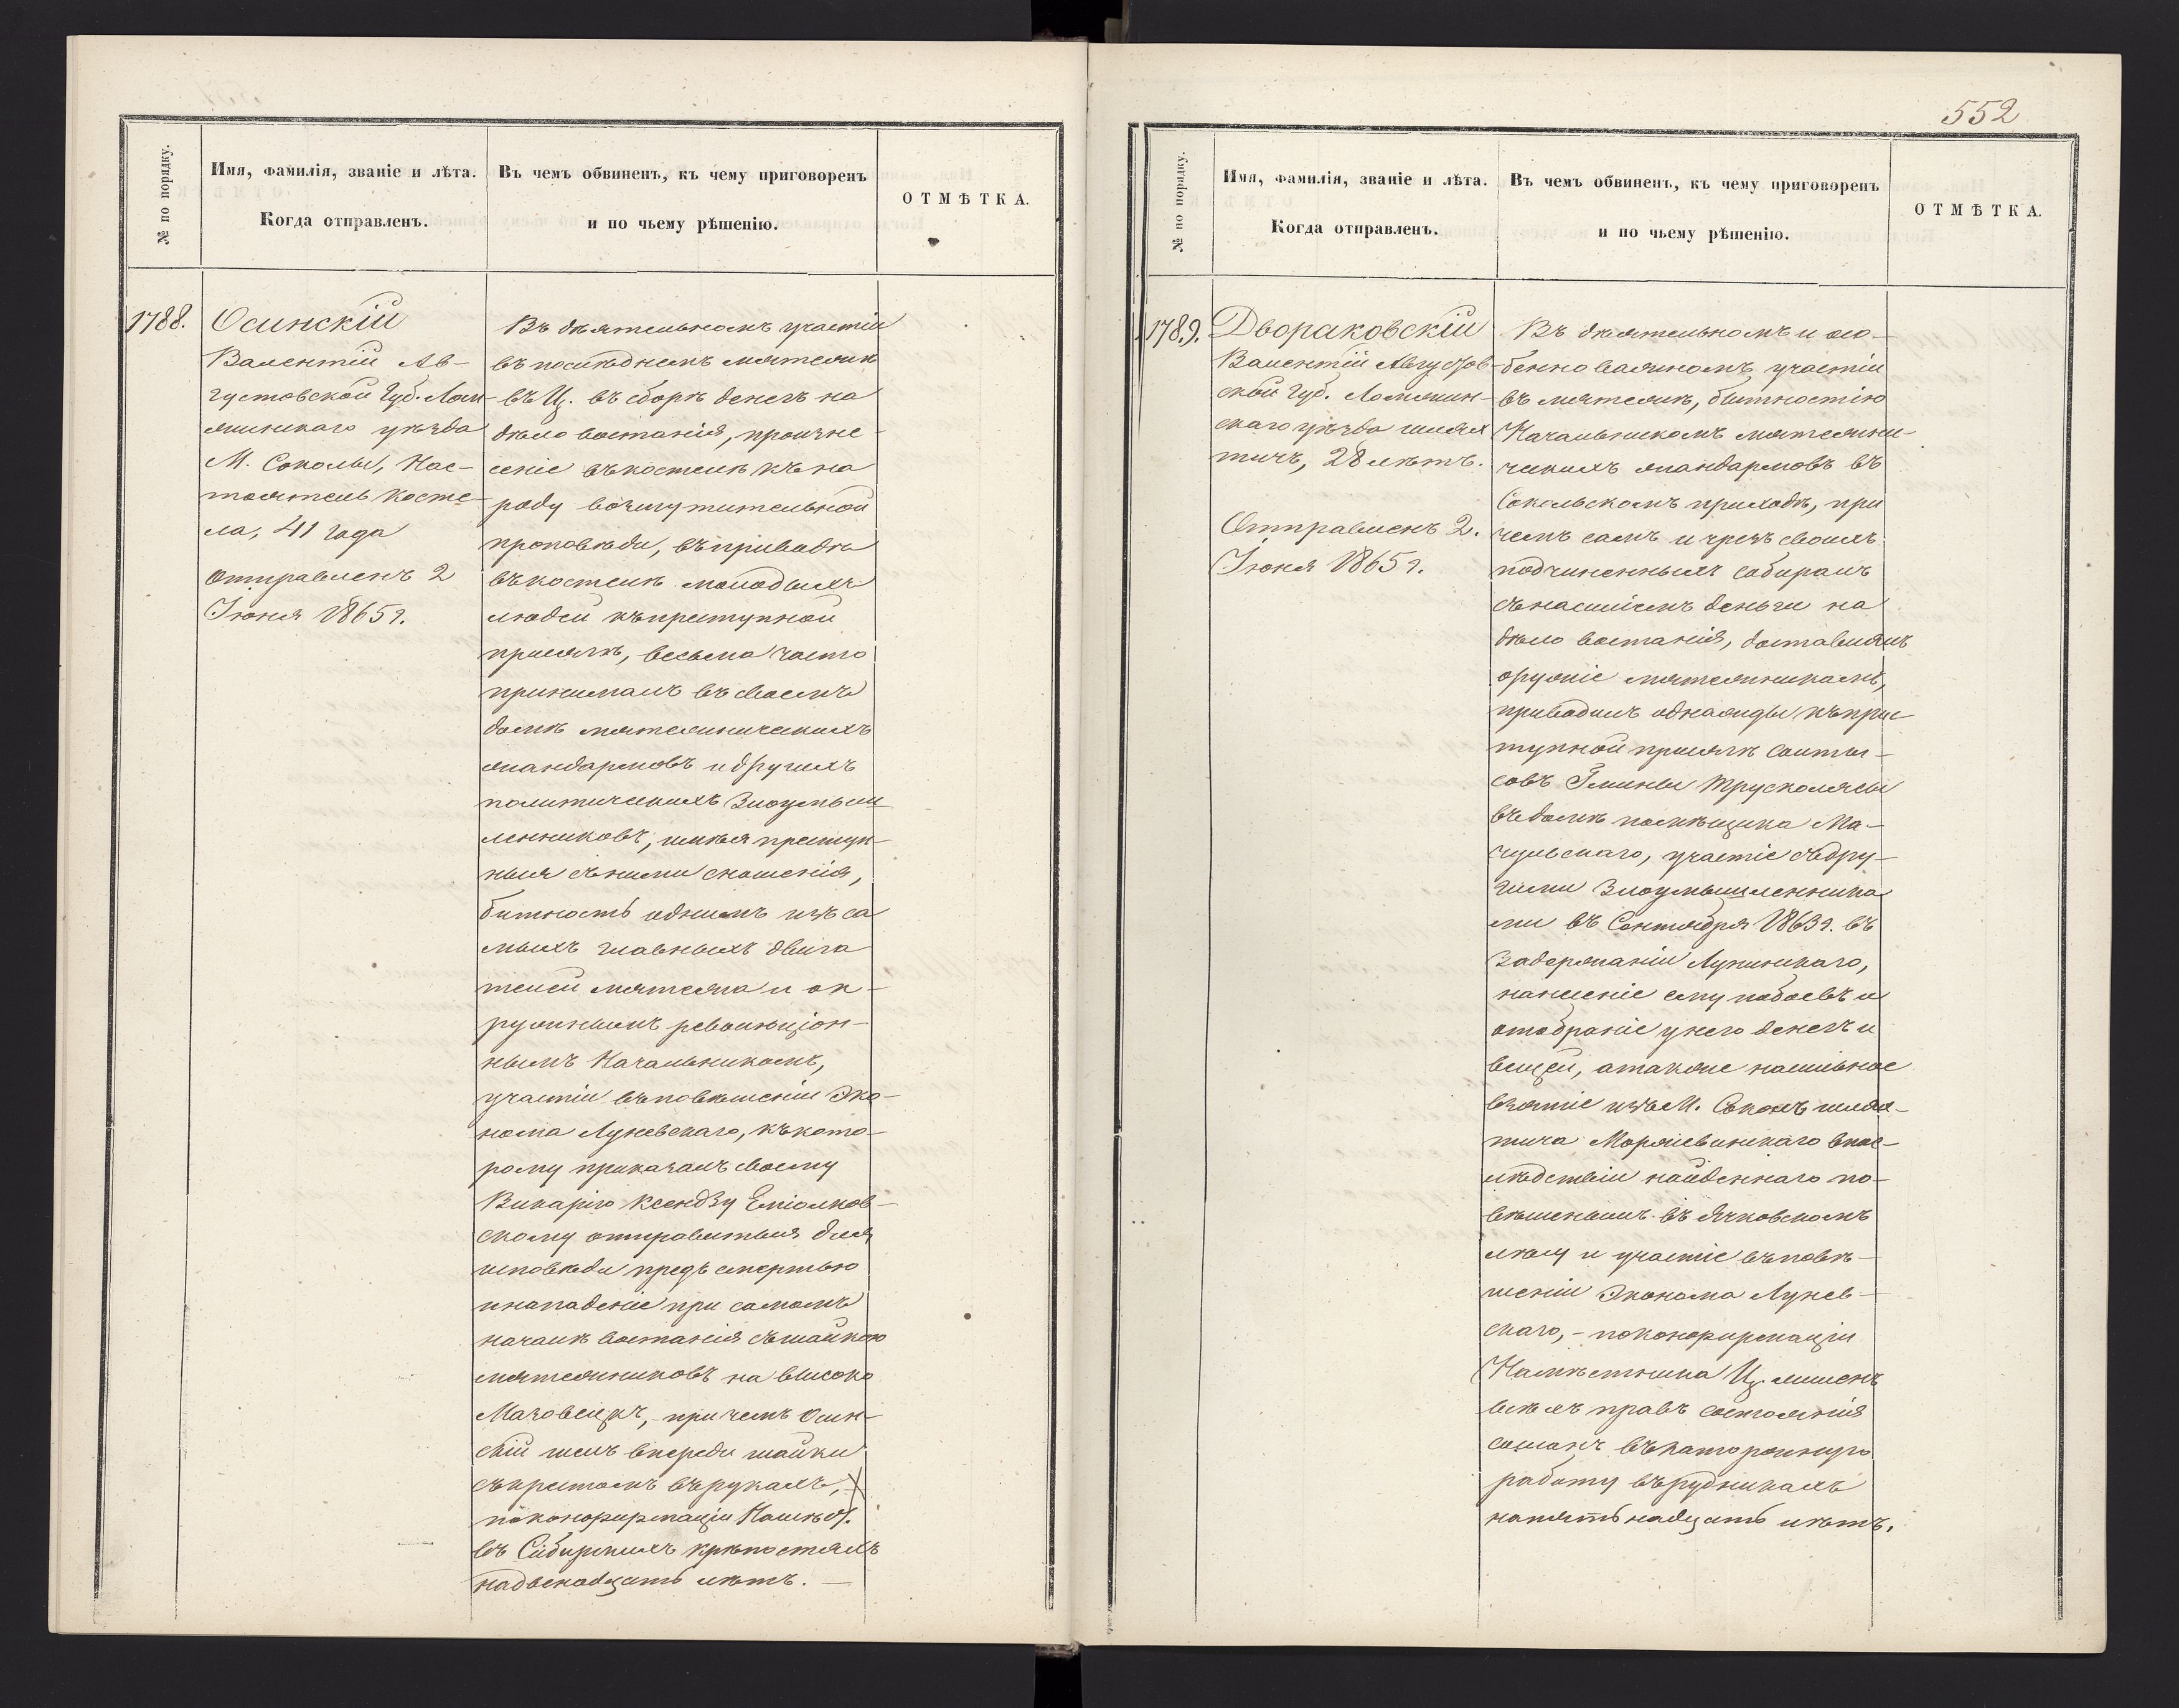 552
№ по порядку.
Имя, фамилія, званіе и лѣта.
Когда отправленъ.
Въ чемъ обвиненъ, къ чему приговоренъ
и по чьему рѣшенію.
ОТМѢТКА.
1788.
Осинскій
Валентій Ав-
густовской Губ. Лом-
жинскаго уѣзда
М. Соколы, Нас-
тоятель косте-
ла, 41 года
Отправленъ 2
Іюня 1865 г.
Въ дѣятельномъ участіи
въ послѣднемъ мятежѣ
въ Ц. въ сборѣ денегъ на
дѣло востанія, произне-
сеніе въ костелѣ къ на
роду возмутительной
проповѣди, въ приводѣ
въ костелѣ молодыхъ
людей къ преступной
присягѣ, весьма часто
принималъ въ своемъ
домѣ мятежническихъ
жандармовъ и другихъ
политическихъ злоумыш
ленниковъ, имѣя преступ-
ныя съ ними сношенія,
бытность однимъ изъ са
мыхъ главныхъ двига
телей мятежа и ок-
ружнымъ революціон-
нымъ Начальникомъ,
участіи въ повѣшеніи Эко-
нома Луневскаго, къ кото-
рому приказалъ своему
Викарію ксендзу
скому отправиться для
исповѣди предъ смертью
и нападеніе при самомъ
началѣ востанія съ шайкою
мятежниковъ на Высоко
Мазовецкъ, - при чемъ Осин-
скій шелъ впереди шайки
съ крестомъ въ рукахъ, -
по конфирмаціи Намѣст.
въ Сибирскихъ крѣпостяхъ
на двенадцать лѣтъ. -
№ по порядку.
Имя, фамилія, званіе и лѣта.
Когда отправленъ.
Въ чемъ обвиненъ, къ чему приговоренъ
и по чьему рѣшенію.
ОТМѢТКА.
1789.
Двораковскій
Валентій Августов-
ской Губ. Ломжин-
скаго уѣзда шлях
тичъ, 28 лѣтъ.
Отправленъ 2.
Іюня 1865 г.
Въ дѣятельномъ и осо-
бенно важномъ участіи
въ мятежѣ, бытностію
Начальникомъ мятежни-
ческихъ жандармовъ въ
Сокольскомъ приходѣ, при
чемъ самъ и чрезъ своихъ
подчиненныхъ собиралъ
съ насиліемъ деньги на
дѣло востанія, доставлялъ
оружіе мятежникамъ,
приводилъ однажды къ прес
тупной присягѣ солты-
совъ Гмины Трусколясы
въ домѣ помѣщика Ма-
чульскаго, участіе съ дру-
гими злоумышленника
ми въ Сентября 1863 г. въ
задержаніи Лупинскаго,
нанесеніе ему побоевъ и
отобраніе у него денегъ и
вещей, а также насильное
взятіе изъ М. Соколъ шлях-
тича впос-
лѣдствіи найденнаго по-
вѣшенымъ въ Ячковскомъ
лѣсу и участіе въ повѣ-
шеніи Эконома Лунев-
скаго, - по конфирмаціи
Намѣстника Ц. лишенъ
всѣхъ правъ состоянія
сосланъ въ каторжную
работу въ рудникахъ
на пятьнадцать лѣтъ.